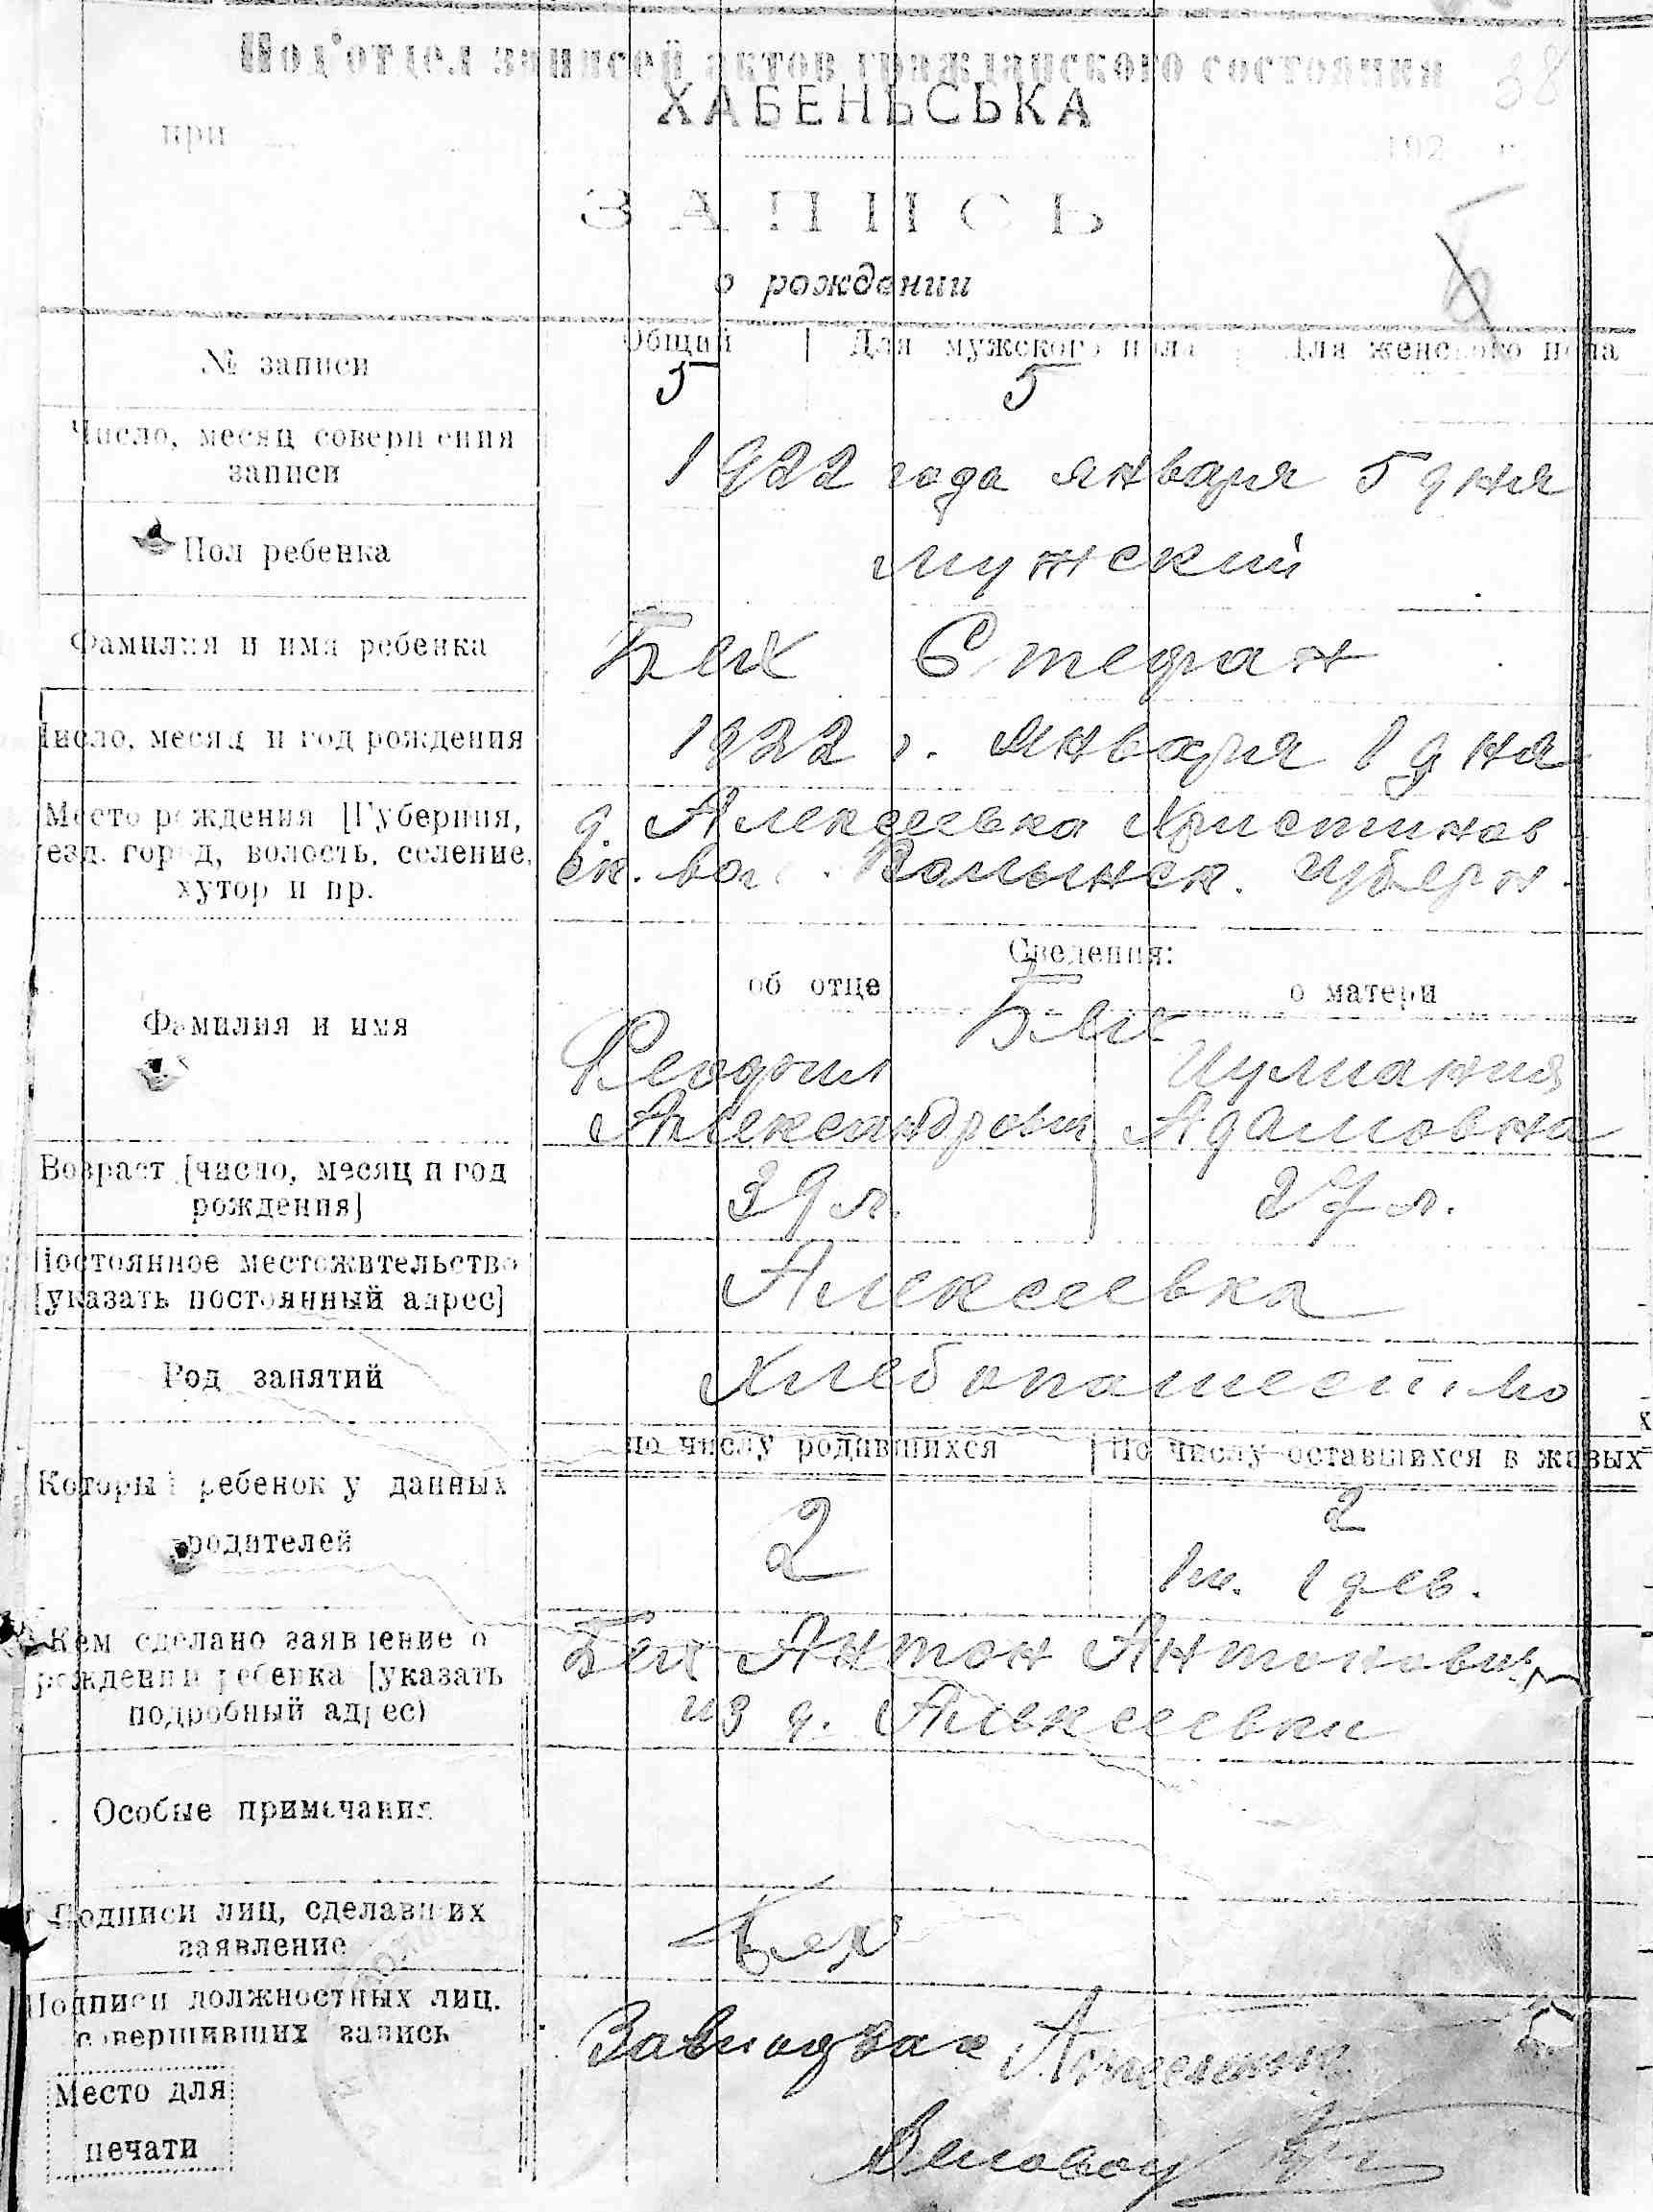 Под'отдел записей актов гражданского состояния
38
ХАБЕНЬСЬКА
при
192 г.
ЗАПИСЬ
о рождении
№ записи
Общий | Для мужского пола | Для женского пола
5 5
Число, месяц совершения
записи
1922 года января 5 дня
Пол ребенка
мужский
Фамилия и имя ребенка
Бех Стефан
Число, месяц и год рождения
1922 г. января 1 дня
Место рождения [Губерния,
уезд, город, волость, селение,
хутор и пр.
д. Алексеевка Христинов
ск. вол. Волынск. губерн.
Сведения:
об отце
о матери
Фамилия и имя
Бех
Феофил
Александрович
Иулиания
Адамовна
Возраст [число, месяц и год
рождения]
39 л.
27 л.
Постоянное местожительство
[указать постоянный адрес]
Алексеевка
Род занятий
Хлебопашество
по числу родившихся
По числу оставшихся в живых
Который ребенок у данных
родителей
2
2
1 м. 1 дев.
Кем сделано заявление о
рождении ребенка [указать
подробный адрес)
Бех Антон Антонович
из д. Алексеевки
Особые примечания
Подписи лиц, сделавших
заявление
Бех
Подписи должностных лиц,
совершивших запись
5
Место для
печати